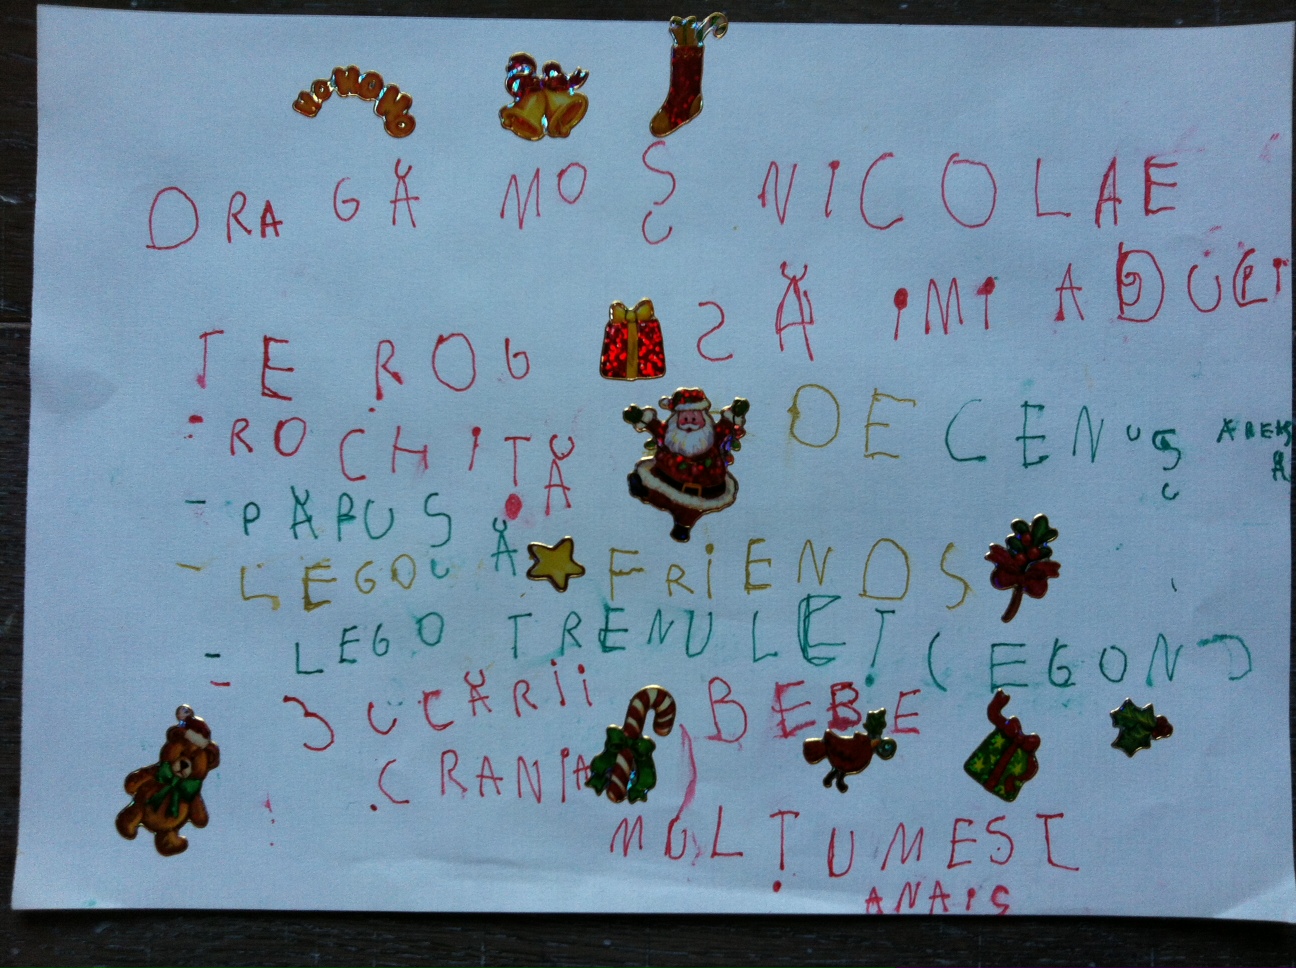 HO HO HO
DRAGĂ MOȘ NICOLAE
TE ROG SĂ IMI ADUCI
- ROCHIȚĂ DE CENUȘ ĂREAS Ă
- PĂPUSĂ
- LEGOU FRIENDS
- LEGO TRENULEȚ (LEGO
- 3UCĂRII BEBE
CRANIA)
MULȚUMESC
ANAIS